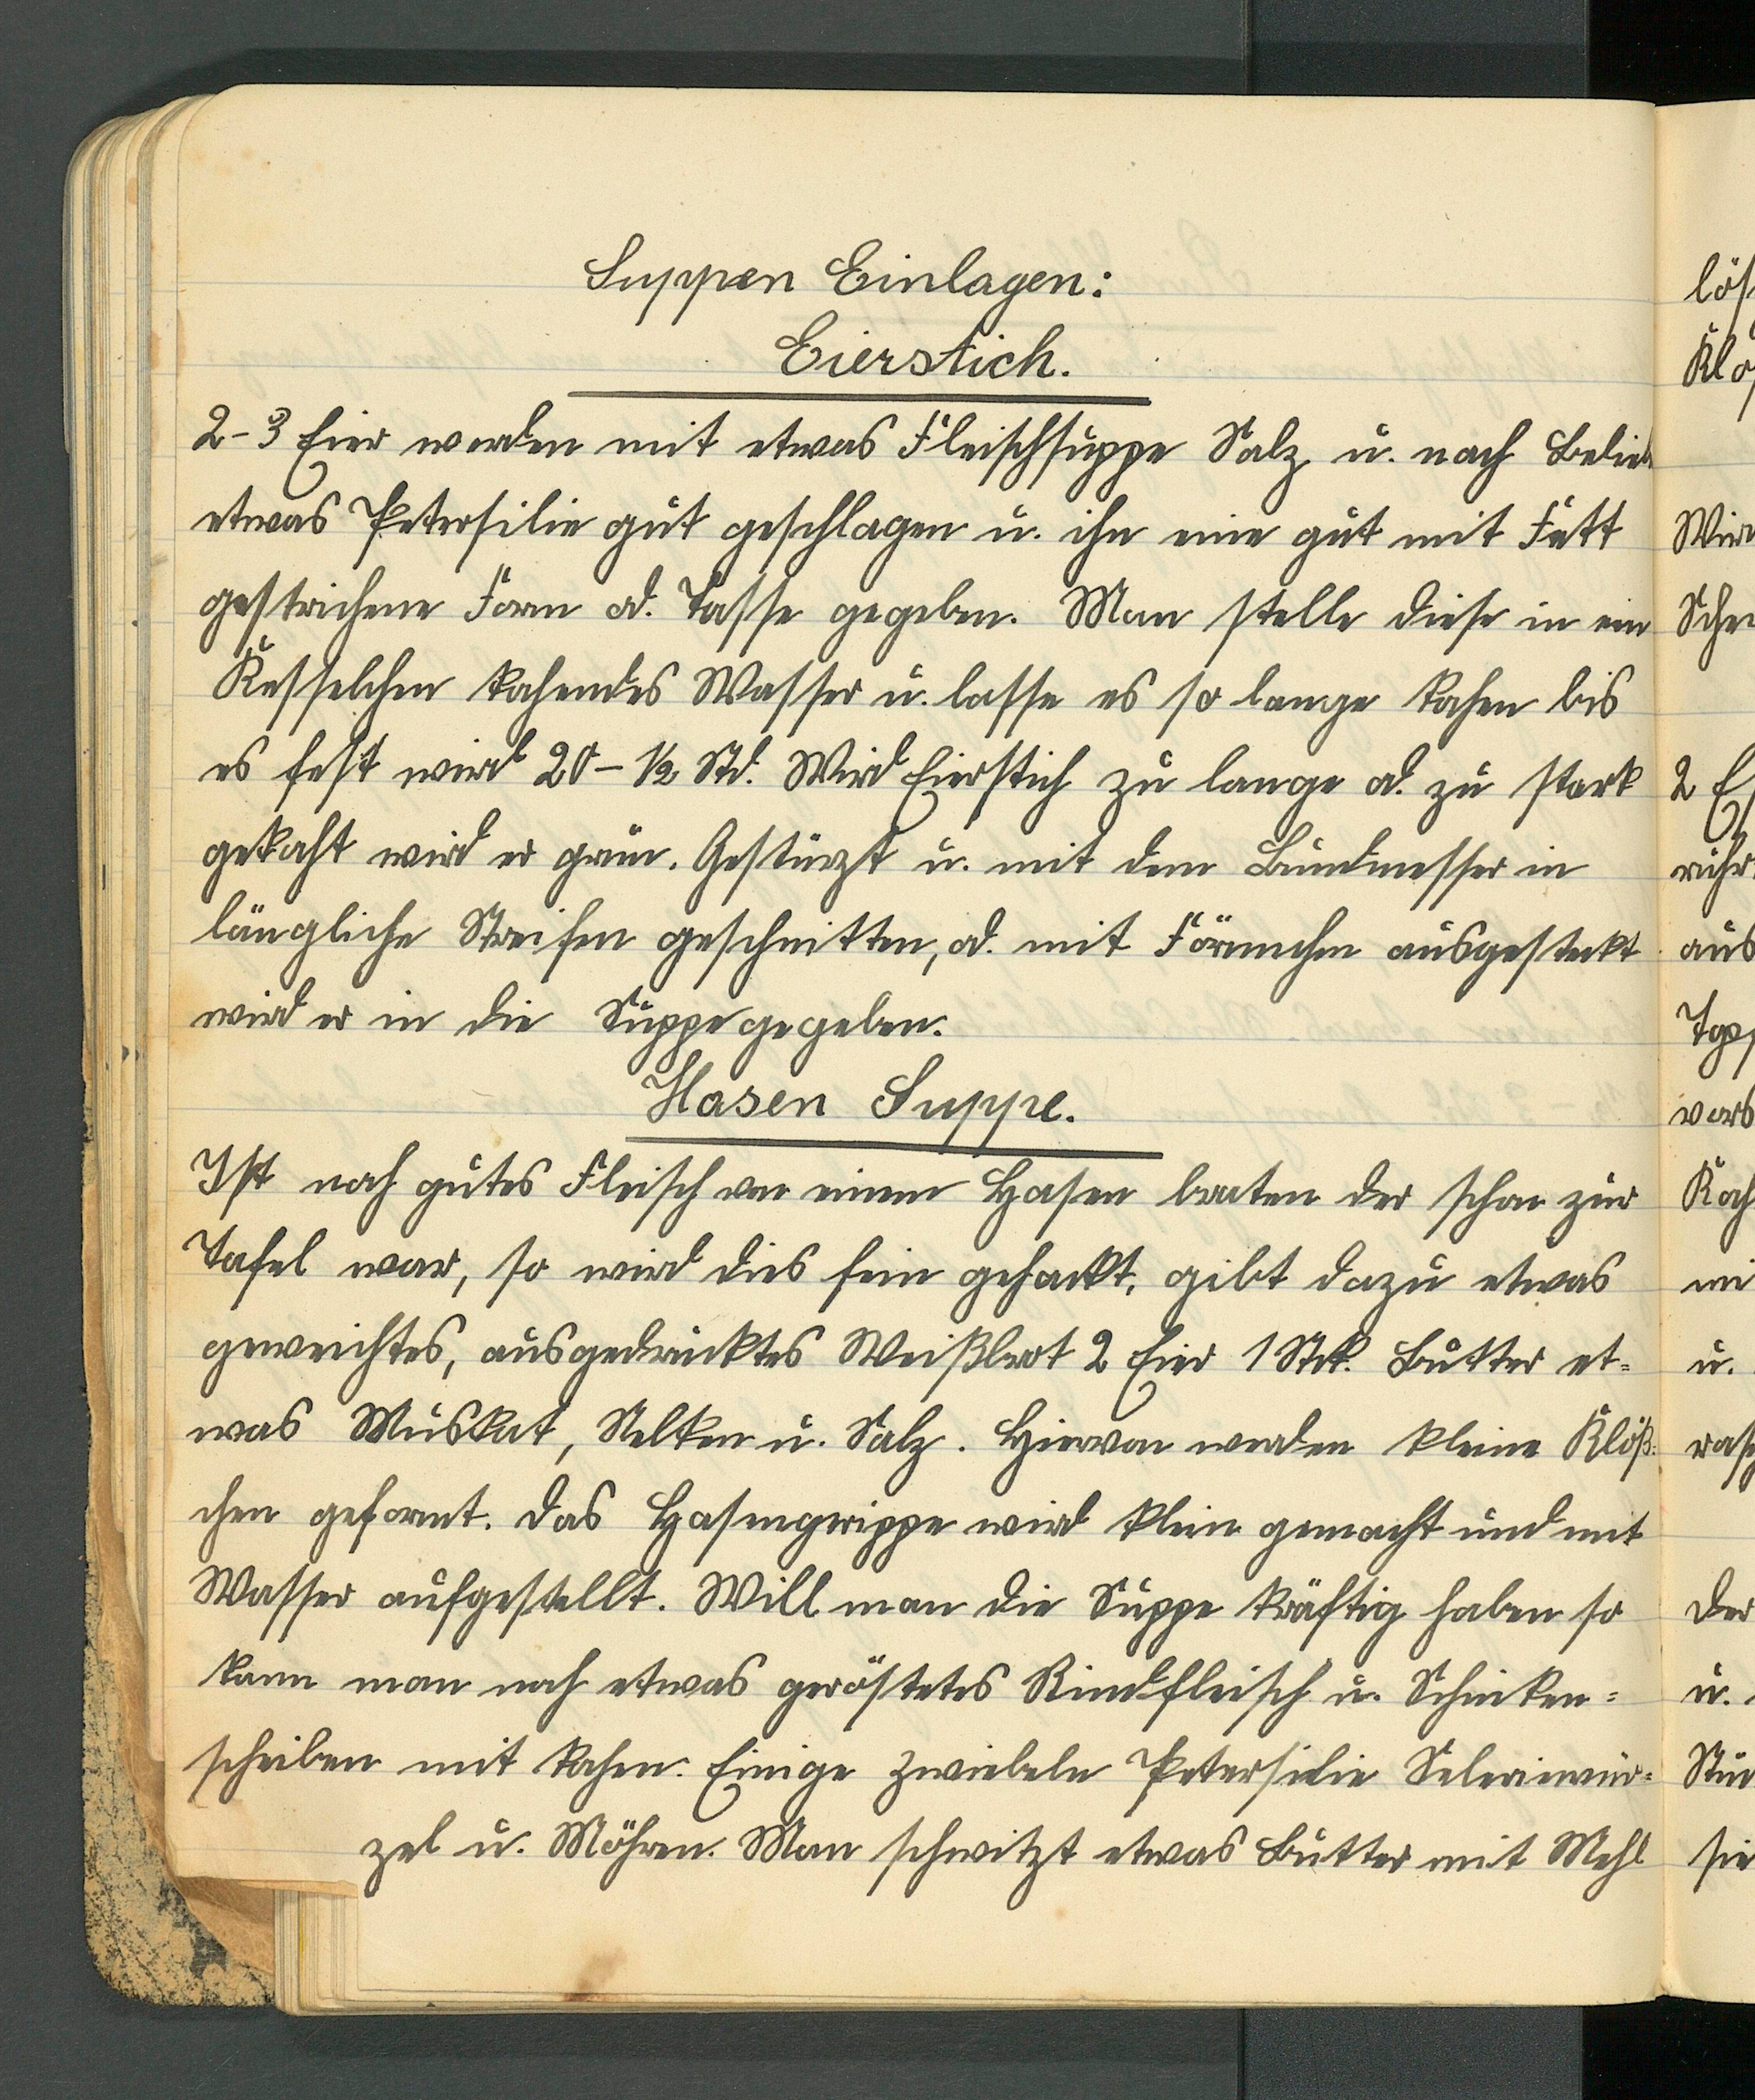 Suppen Einlagen:
Eierstich.
2-3 Eier werden mit etwas Fleischsuppe Salz u. nach Belieb
etwas Petersilie gut geschlagen u. ihn eine gut mit Fett
gestrichene Form od. Tasse gegeben. Man stelle diese in ein
Kesselchen kochendes Wasser u. lasse es so lange kochen bis
es fest wird 20 - ½ Std. Wird Eierstich zu lange od. zu stark
gekocht wird er grün. Gestürzt u. mit dem Bundmesser in
längliche Streifen geschnitten, od. mit Förmchen ausgesteckt
wird er in die Suppe gegeben.
Hasen Suppe.
Ist noch gutes Fleisch von einem Hasen braten der schon zur
Tafel war, so wird dies fein gehackt, gibt dazu etwas
geweichtes, ausgedrücktes Weißbrot 2 Eier 1 Stck. Butter et=
was Muskat, Nelken u. Salz. Hiervon werden kleine Klöß=
chen geformt. Das Hasengerippe wird klein gemacht und mit
Wasser aufgestellt. Will man die Suppe kräftig haben so
kann man noch etwas geröstetes Rindfleisch u. Schinken=
scheiben mit kochen. Einige Zwiebeln Petersilie Seleriewur=
zel u. Möhren. Man schwitzt etwas Butter mit Mehl